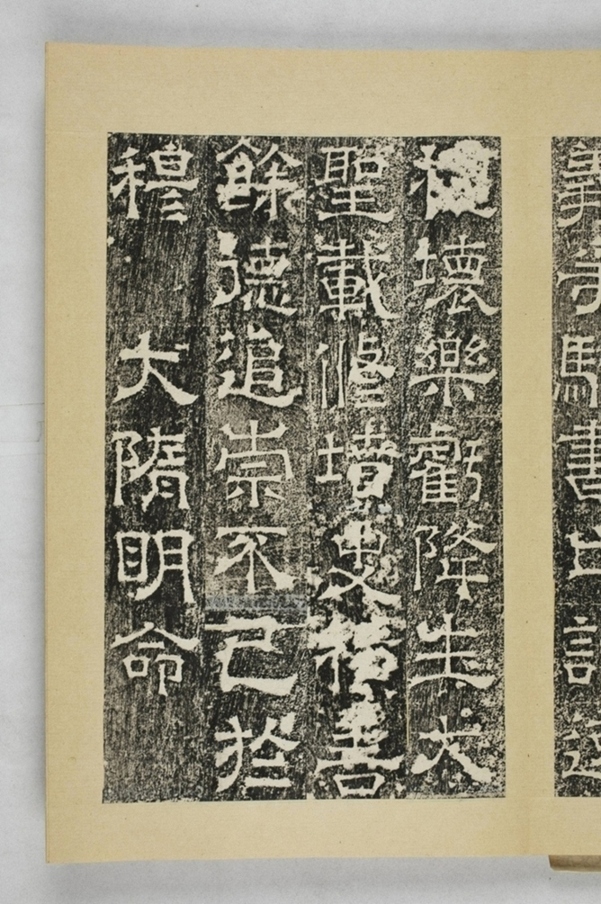 書
壞樂虧降生大
聖載修墳史積善
餘德追崇不已於
穆 大隋明命